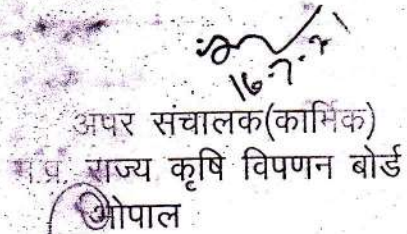 16.7.21
अपर संचालक(कार्मिक)
म.प्र. राज्य कृषि विपणन बोर्ड
भोपाल